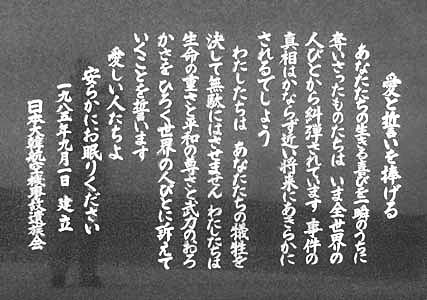 愛と誓いを捧げる
あなたたちの生きる喜びを一瞬のうちに
奪いさったものたちは いま全世界の
人びとから糾弾されています 事件の
真相はかならず近い将来にあきらかに
されるでしょう
わたしたちは あなたたちの犠牲を
決して無駄にはさせません わたしたちは
生命の重さと平和の尊さと武力のおろ
かさをひろく世界の人びとに訴えて
いくことを誓います
愛しい人たちよ
安らかにお眠りください
一九八五年九月一日 建立
日本大韓航空機事故遺族会